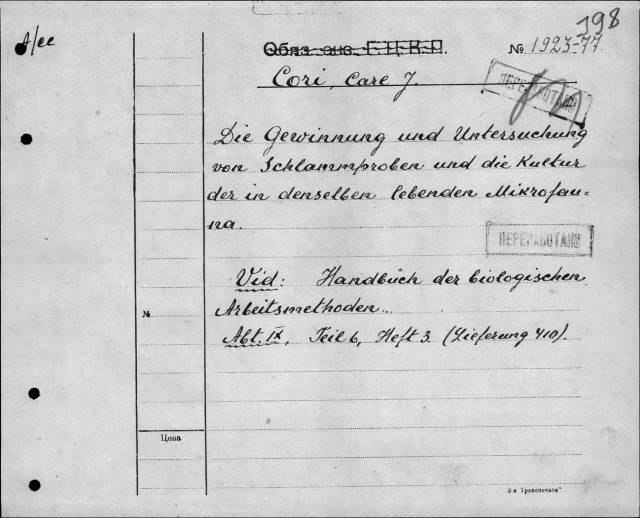 198
A/ее
Обяз. экз. Г.Ц.К.П.
№ 1923-77.
Cori, Care J.
ПЕРЕРАБОТАНО
Die Gewinnung und Untersuchung
von Schlammproben und die Kultur
der in denselben lebenden Mikrofau-
na.
ПЕРЕРАБОТАНО
Vid: Handbuch der biologischen
Arbeitsmethoden...
№
Abt. IX, Teil 6, Heft 3. (Lieferung 410).
Цена
3-я "Транспечати"